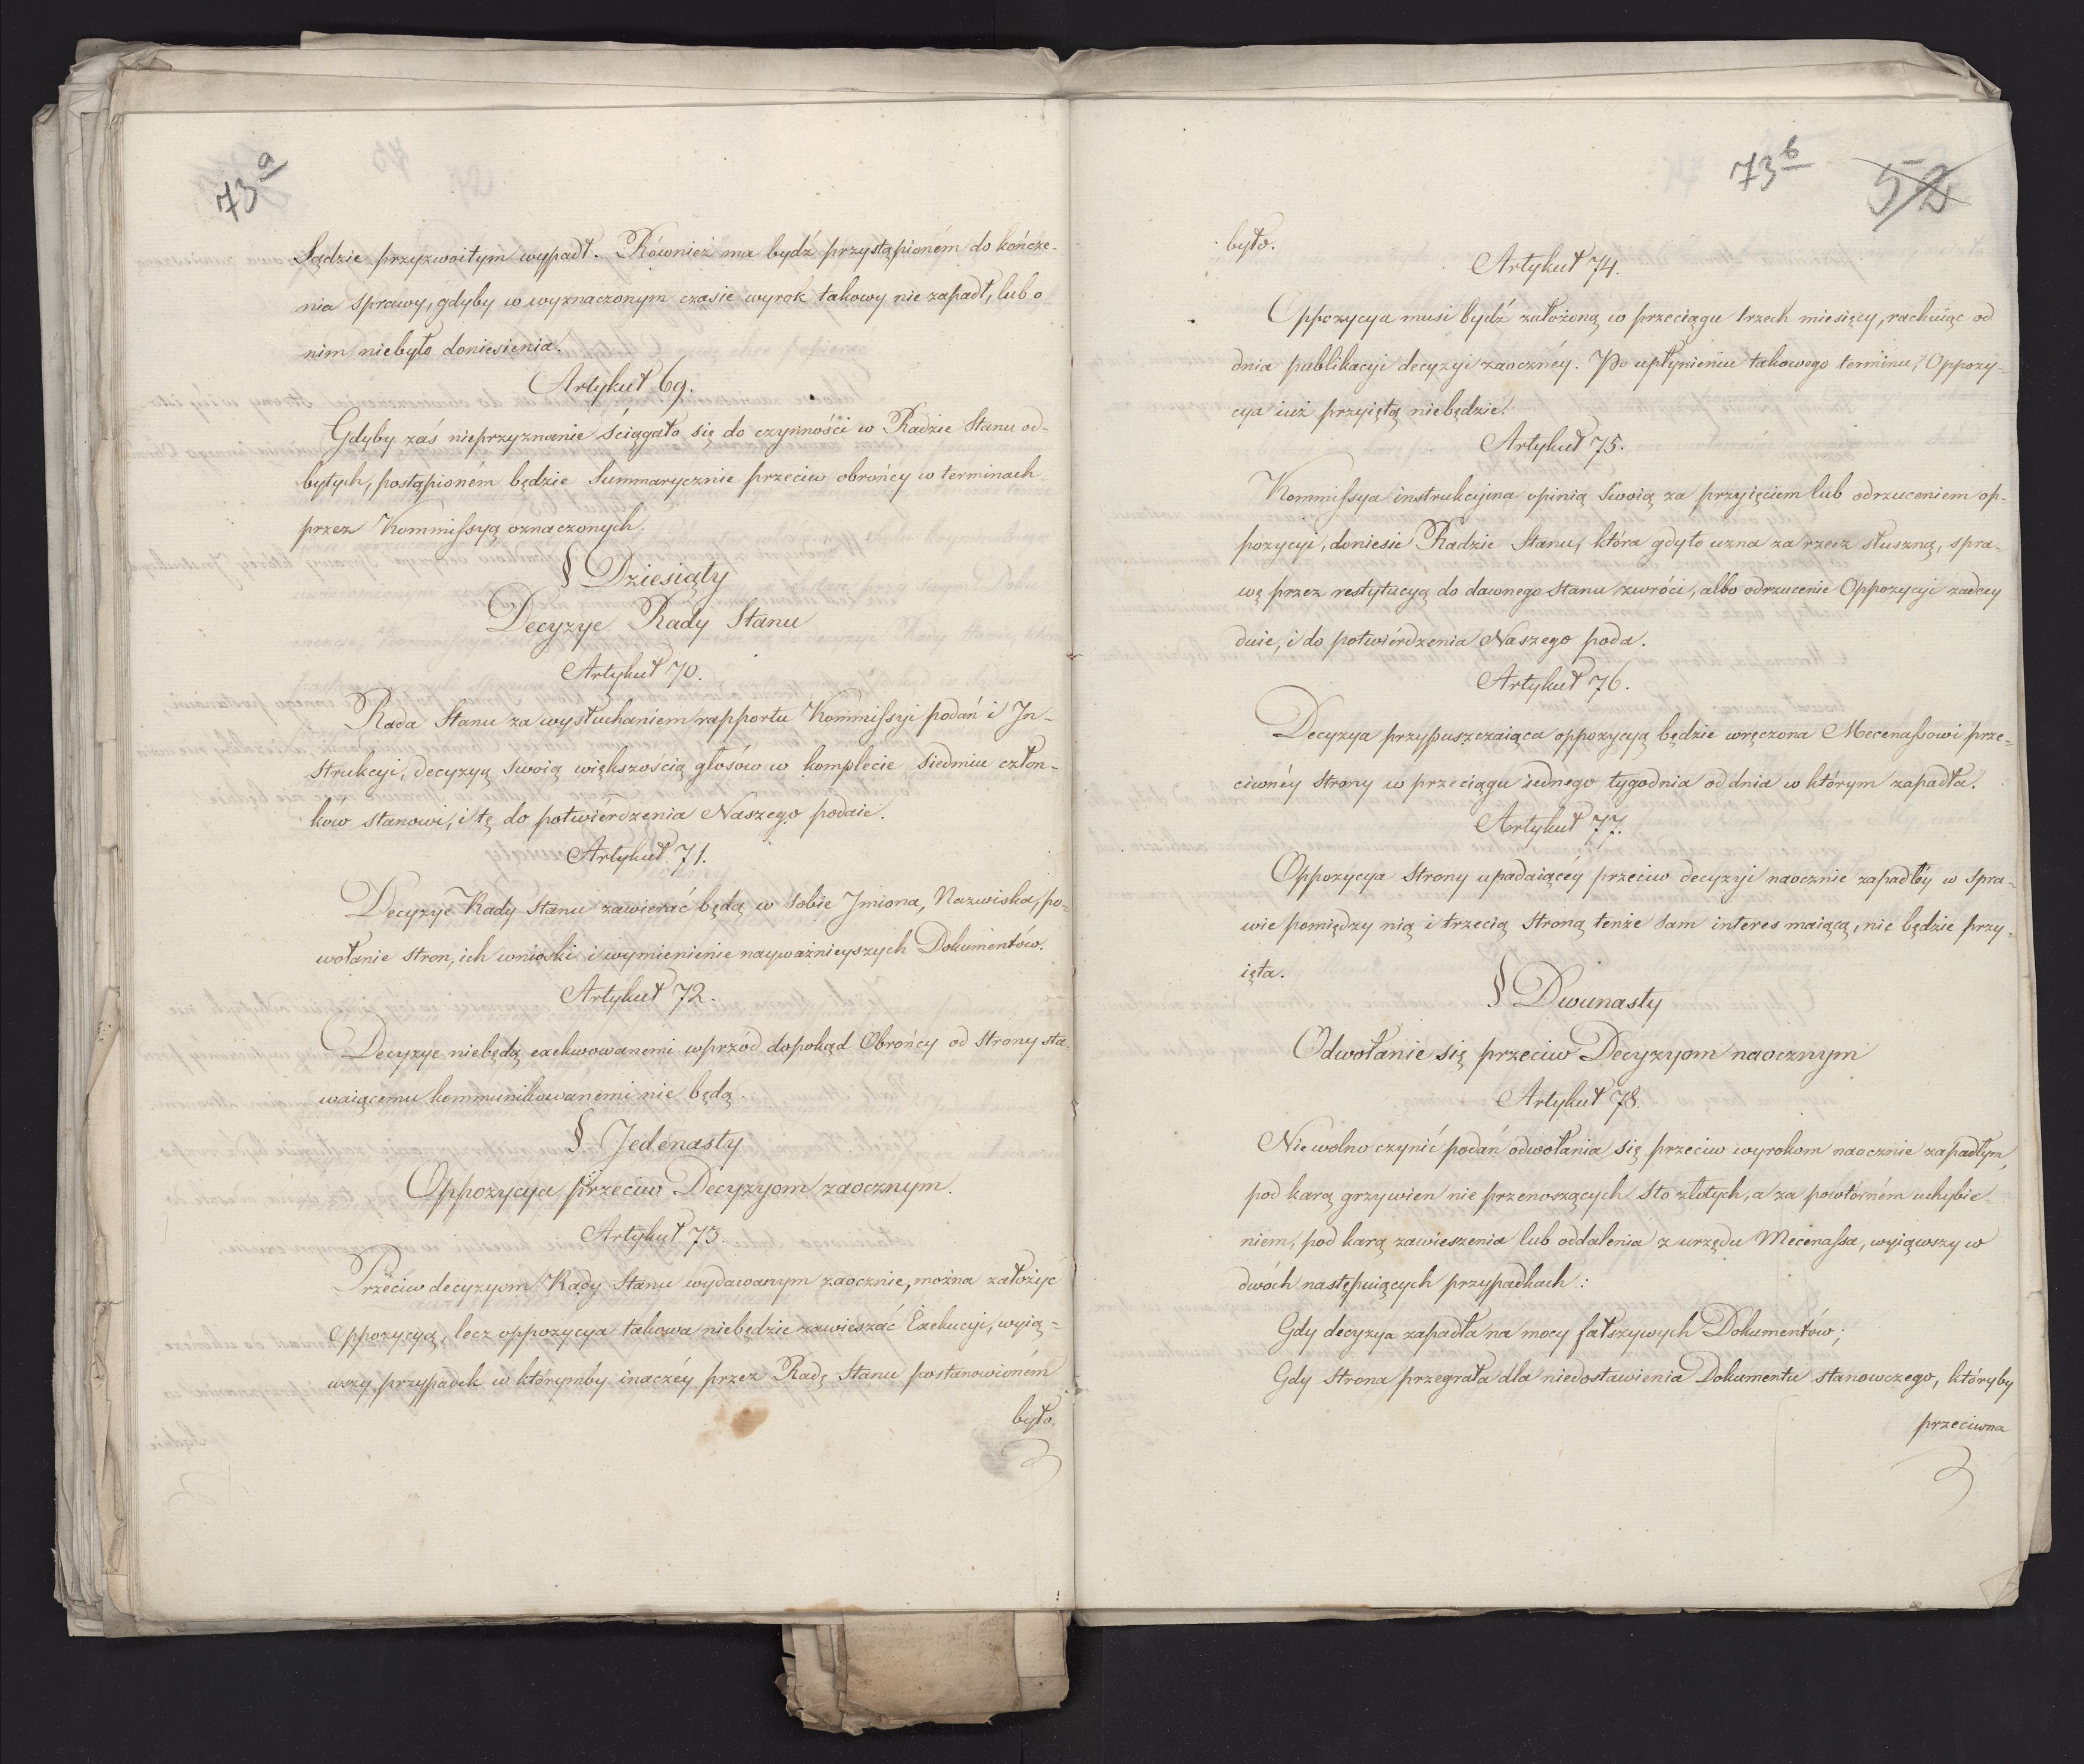 73a
Sądzie przyzwoitym wypadł. Również ma bydź przystąpioném do kończe-
nia sprawy, gdyby w wyznaczonym czasie wyrok takowy nie zapadł, lub o
nim niebyło doniesienia.
Artykuł 69.
Gdyby zaś nieprzyznanie ściągało się do czynności w Radzie Stanu od-
bytych, postąpioném będzie Summarycznie przeciw obrońcy w terminach
przez Kommissyą oznaczonych.
§ Dziesiąty
Decyzye Rady Stanu
Artykuł 70.
Rada Stanu za wysłuchaniem rapportu Kommissyi podań i In-
strukcyi, decyzyą swoią większością głosów w komplecie siedmiu człon-
ków stanowi, i tę do potwiérdzenia Naszego podaie.
Artykuł 71.
Decyzye Rady Stanu zawierać będą w sobie Imiona, Nazwiska, po-
wołanie stron, ich wnioski i wymienienie nayważnieyszych Dokumentów.
Artykuł 72.
Decyzye niebędą exekwowanemi wprzód dopokąd Obrońcy od Strony sta-
waiącemu kommunikowanemi nie będą.
§ Jedenasty
Oppozycya przeciw Decyzyom zaocznym.
Artykuł 73.
Przeciw decyzyom Rady Stanu wydawanym zaocznie, można założyć
oppozycyą, lecz oppozycya takowa niebędzie zawieszać Exekucyi, wyią-
wszy przypadek w którymby inaczéy przez Radę Stanu postanowioném
było.
73b
52
było.
Artykuł 74.
Oppozycya musi bydź założoną w przeciągu trzech miesięcy, rachuiąc od
dnia publikacyi decyzyi zaocznéy. Po upłynieniu takowego terminu, Oppozy-
cya iuż przyiętą niebędzie.
Artykuł 75.
Kommissya instrukcyina opinią Swoią za przyięciem lub odrzuceniem op-
pozycyi, doniesie Radzie Stanu, która gdy to uzna za rzecz słuszną, spra-
wę przez restytucyą do dawnego stanu zwróci, albo odrzucenie Oppozycyi zadecy
duie, i do potwiérdzenia Naszego poda.
Artykuł 76.
Decyzya przypuszczaiąca oppozycyą będzie wręczona Mecenassowi prze-
ciwnéy strony w przeciągu iednego tygodnia od dnia w którym zapadła.
Artykuł 77.
Oppozycya Strony upadaiącéy przeciw decyzyi naocznie zapadłéy w spra-
wie pomiędzy nią i trzecią Stroną tenże sam interes maiącą, nie będzie przy-
ięta.
§ Dwunasty
Odwołanie się przeciw Decyzyom naocznym
Artykuł 78.
Nie wolno czynić podań odwołania się przeciw wyrokom naocznie zapadłym,
pod karą grzywien nie przenoszących Sto złotych, a za powtórném uchybie-
niem, pod karą zawieszenia lub oddalenia z urzędu Mecenassa, wyiąwszy w
dwóch następuiących przypadkach:
Gdy decyzya zapadła na mocy fałszywych Dokumentów;
Gdy Strona przegrała dla niedostawienia Dokumentu stanowczego, któryby
przeciwna